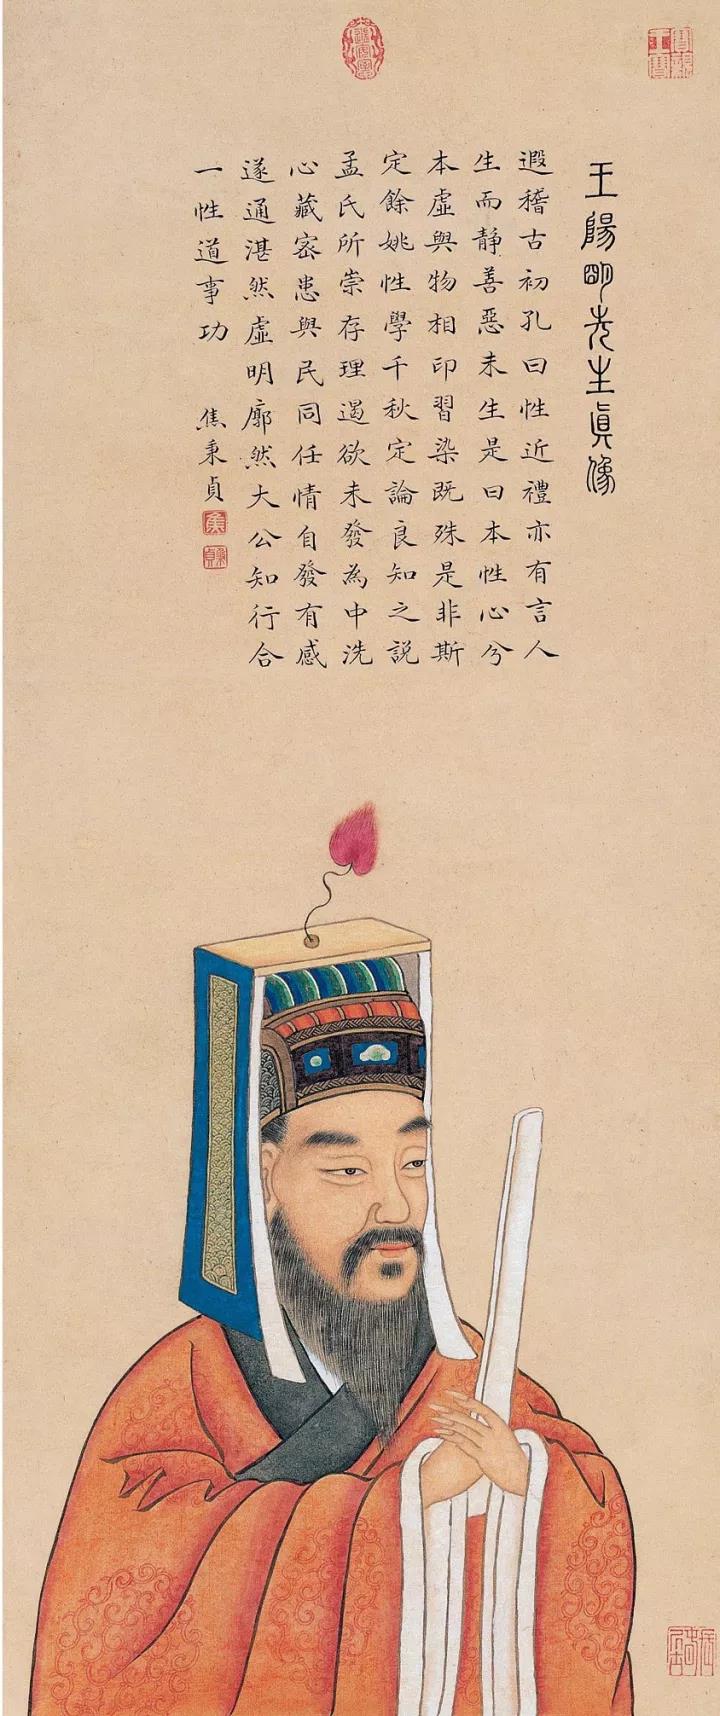 王陽明先生真像
遐稽古初孔曰性近禮亦有言人
生而靜善惡未生是曰本性心兮
本虛與物相印習染既殊是非斯
定餘姚性學千秋定論良知之説
孟氏所崇存理遏欲未發為中洗
心藏宻患與民同任情自發有感
遂通湛然虛明廓然大公知行合
一性道事功
焦秉貞